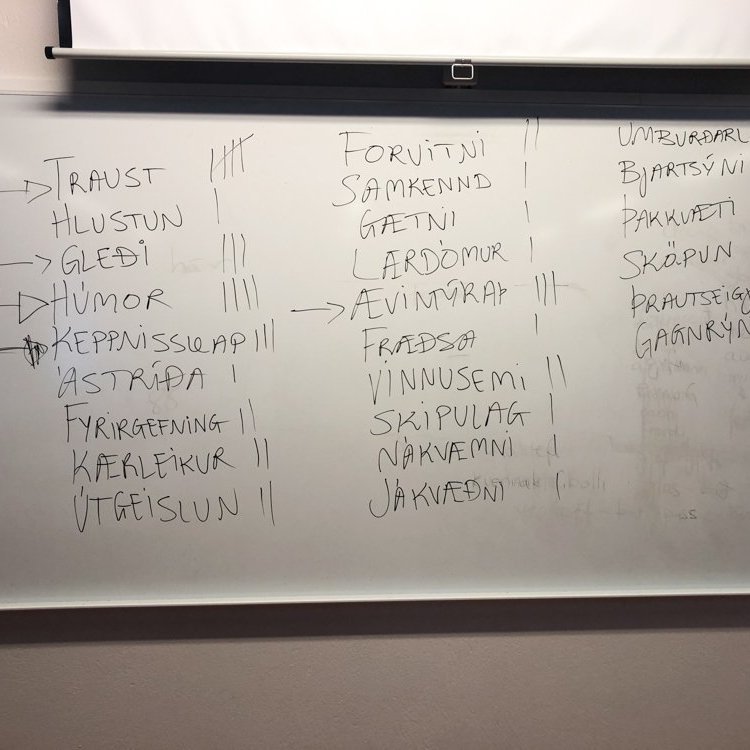 TRAUST
HLUSTUN
GLEÐI
HÚMOR
KEPPNISSKAP
ÁSTRÍÐA
FYRIRGEFNING
KÆRLEIKUR
ÚTGEISLUN
FORVITNI
SAMKENND
GÆTNI
LÆRDÓMUR
ÆVINTÝRAÞ
FRÆÐSA
VINNUSEMI
SKIPULAG
NÁKVÆMNI
JÁKVÆÐNI
UMBURÐARL
BJARTSÝNI
ÞAKKLÆTI
SKÖPUN
ÞRAUTSEIG
GAGNRÝN